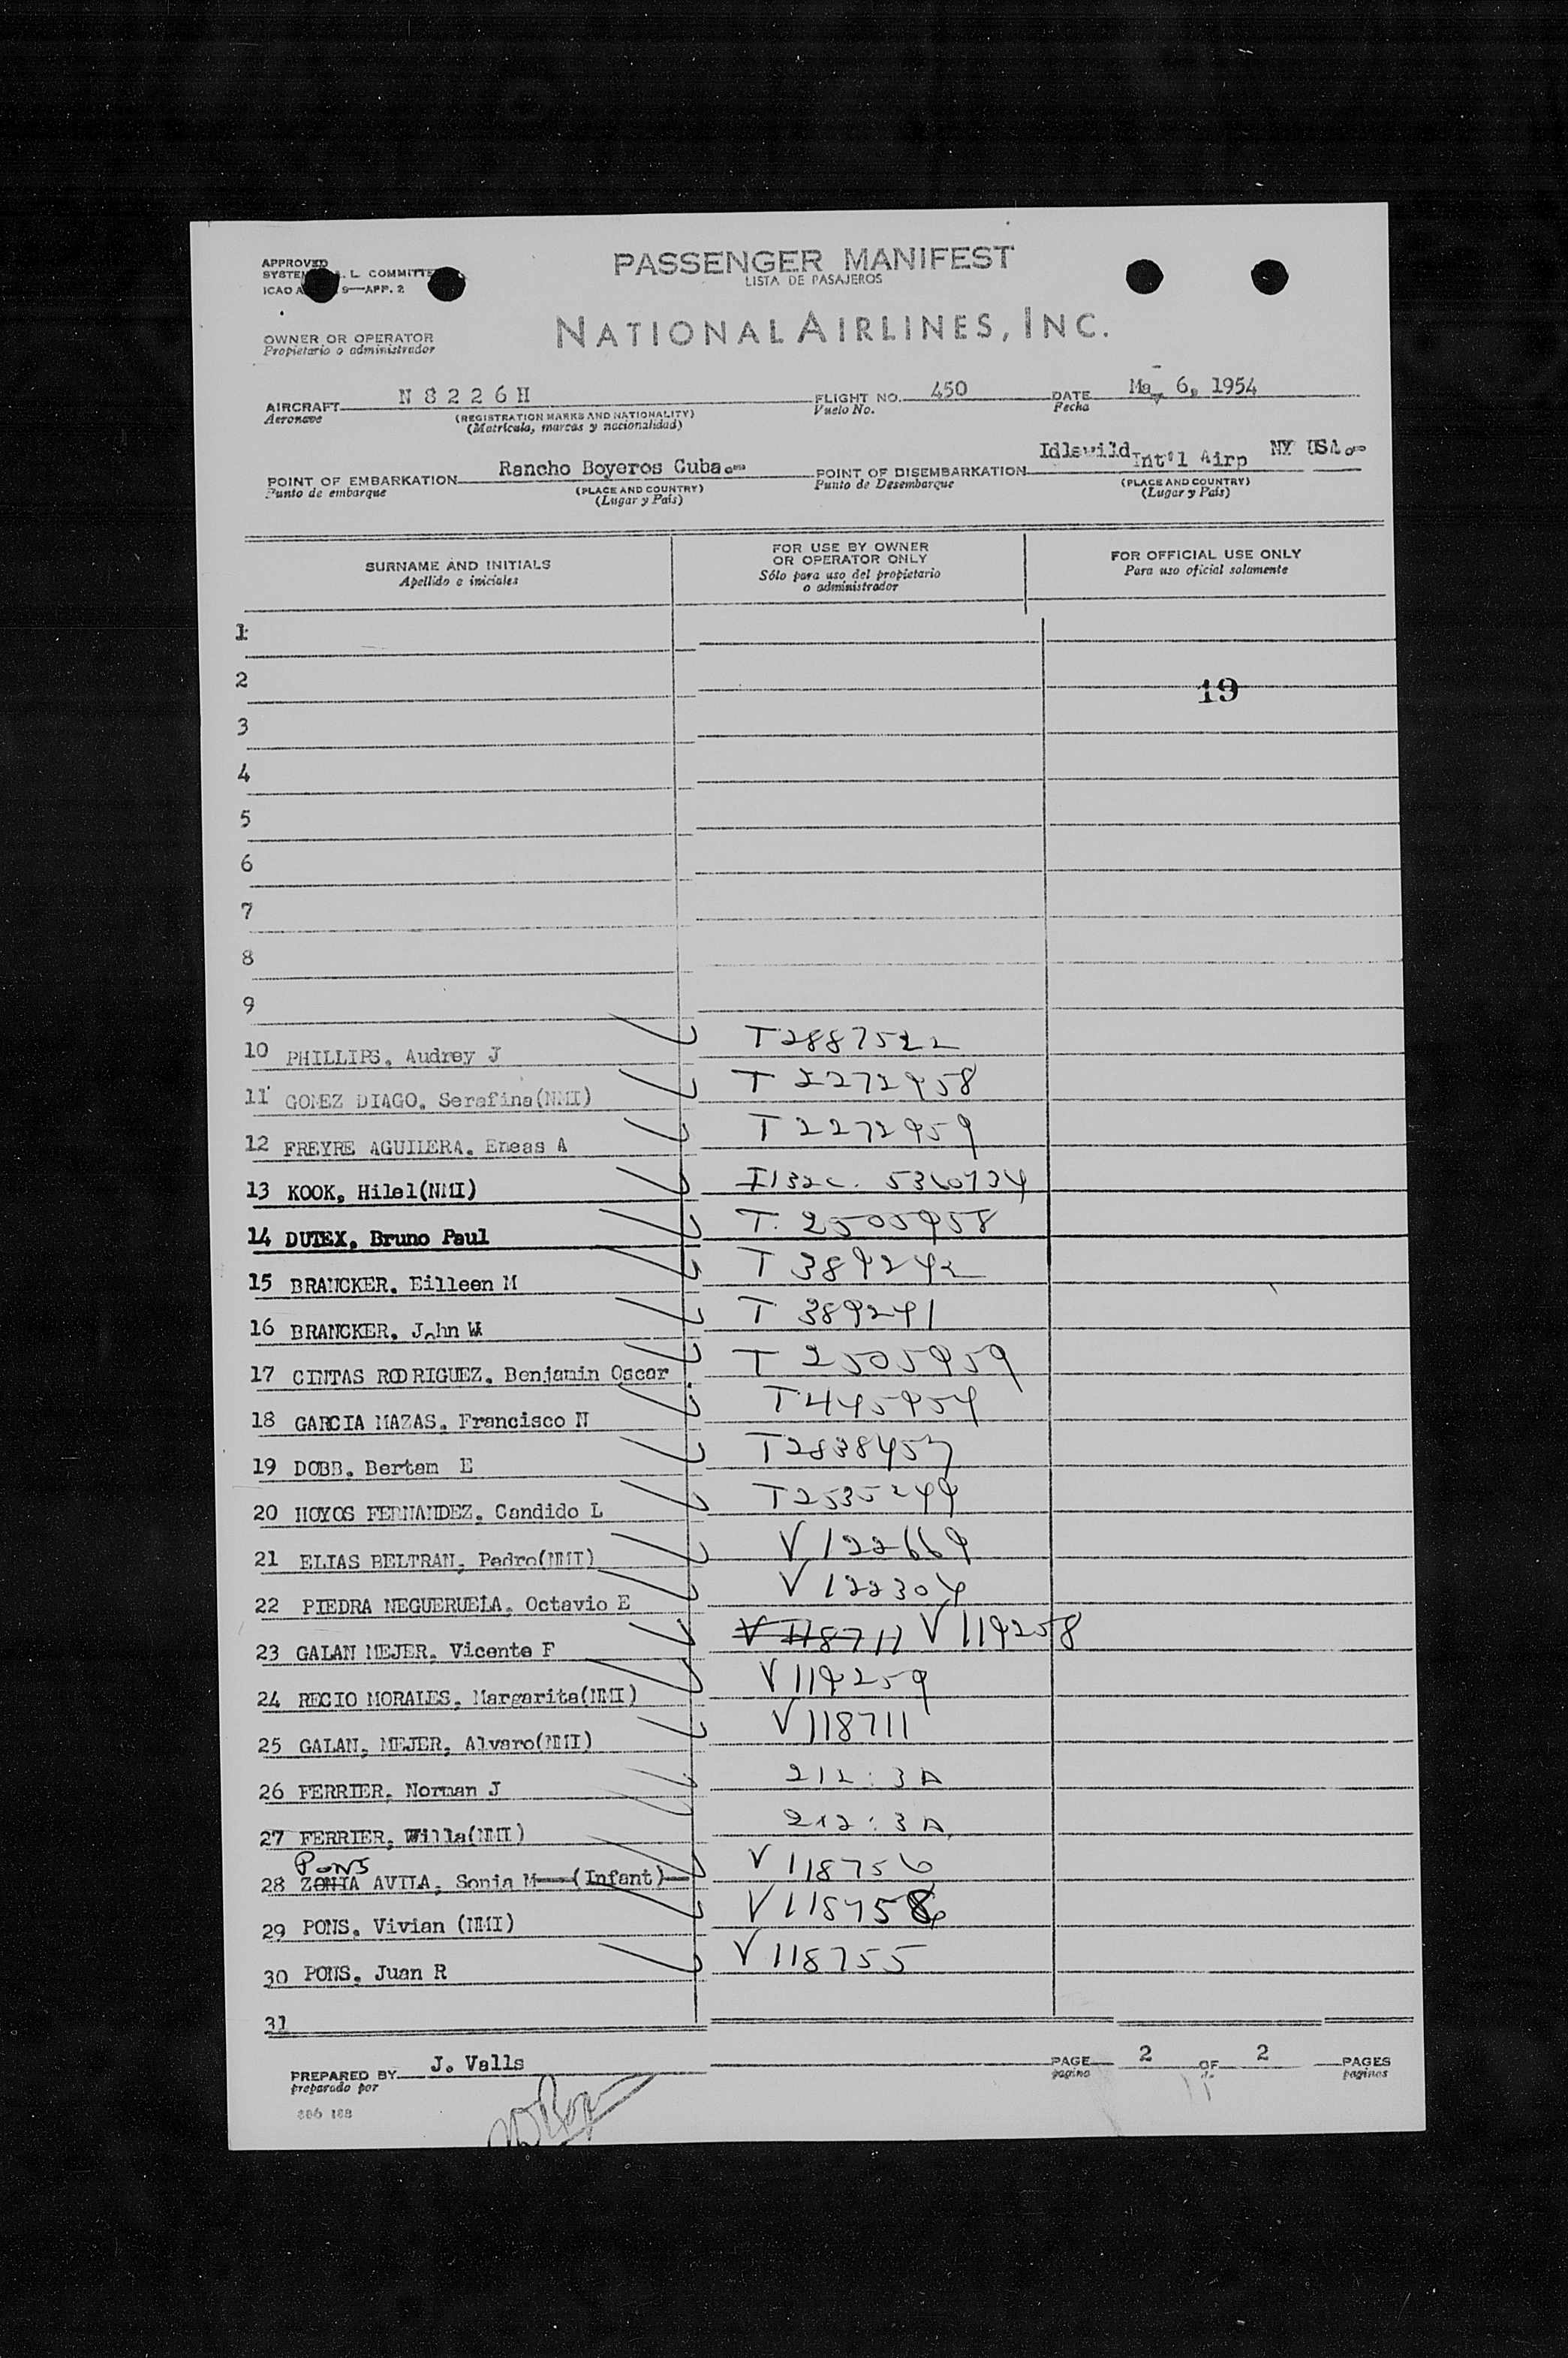 APPROVED
PASSENGER MANIFEST
LISTA DE PASAJEROS
L. COMMITTE
ICAO S—APP. 2
OWNER OR OPERATOR
Propietario o administrador
NATIONAL AIRLINES, INC.
AIRCRAFT N 8 2 2 6 H FLIGHT NO. 450 DATE May 6, 1954
Aeronave (REGISTRATION MARKS AND NATIONALITY) Vuelo No. Fecha
(Matrícula, marcas y nacionalidad)
POINT OF EMBARKATION Rancho Boyeros Cuba.-- POINT OF DISEMBARKATION Idlewild Int'l Airp NY USA.--
Punto de embarque (PLACE AND COUNTRY) Punto de Desembarque (PLACE AND COUNTRY)
(Lugar y País) (Lugar y País)
SURNAME AND INITIALS FOR USE BY OWNER OR OPERATOR ONLY FOR OFFICIAL USE ONLY
Apellido e iniciales Sólo para uso del propietario o administrador Para uso oficial solamente
1
2 19
3
4
5
6
7
8
9
10 PHILLIPS, Audrey J T2887522
11 GOMEZ DIAGO, Serafina(NMI) T 2272958
12 FREYRE AGUILERA, Eneas A T 2272959
13 KOOK, Hilel(NMI)
14 DUTEX, Bruno Paul T. 2505958
15 BRANCKER, Eilleen M T 389242
16 BRANCKER, John W T 389241
17 CINTAS RODRIGUEZ, Benjamin Oscar T 2505959
18 GARCIA MAZAS, Francisco N T445954
19 DOBB, Bertam E T2838457
20 HOYOS FERNANDEZ, Candido L T2535249
21 ELIAS BELTRAN, Pedro(NMI) V 122669
22 PIEDRA NEGUERUELA, Octavio E V 122304
23 GALAN MEJER, Vicente F V 118711 V 119258
24 RECIO MORALES, Margarita(NMI) V 119259
25 GALAN, MEJER, Alvaro(NMI) V 118711
26 FERRIER, Norman J 212:3A
27 FERRIER, Willa(NMI) 212:3A
PONS
28 ZONIA AVILA, Sonia M--(Infant)-- V 118756
29 PONS, Vivian (NMI)
30 PONS, Juan R V 118755
31
PREPARED BY J. Valls PAGE 2 OF 2 PAGES
preparado por pagina de paginas